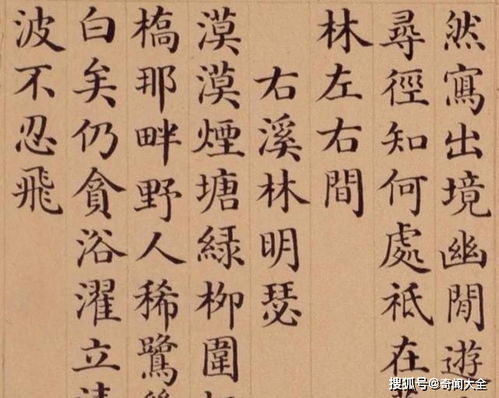 然寫出境幽閒遊
尋徑知何處祗在
林左右間
右溪林明瑟
漠漠煙塘綠柳圍
槗那畔野人稀鷺
白矣仍貪浴濯立清
波不忍飛
搜狐号@奇闻大全